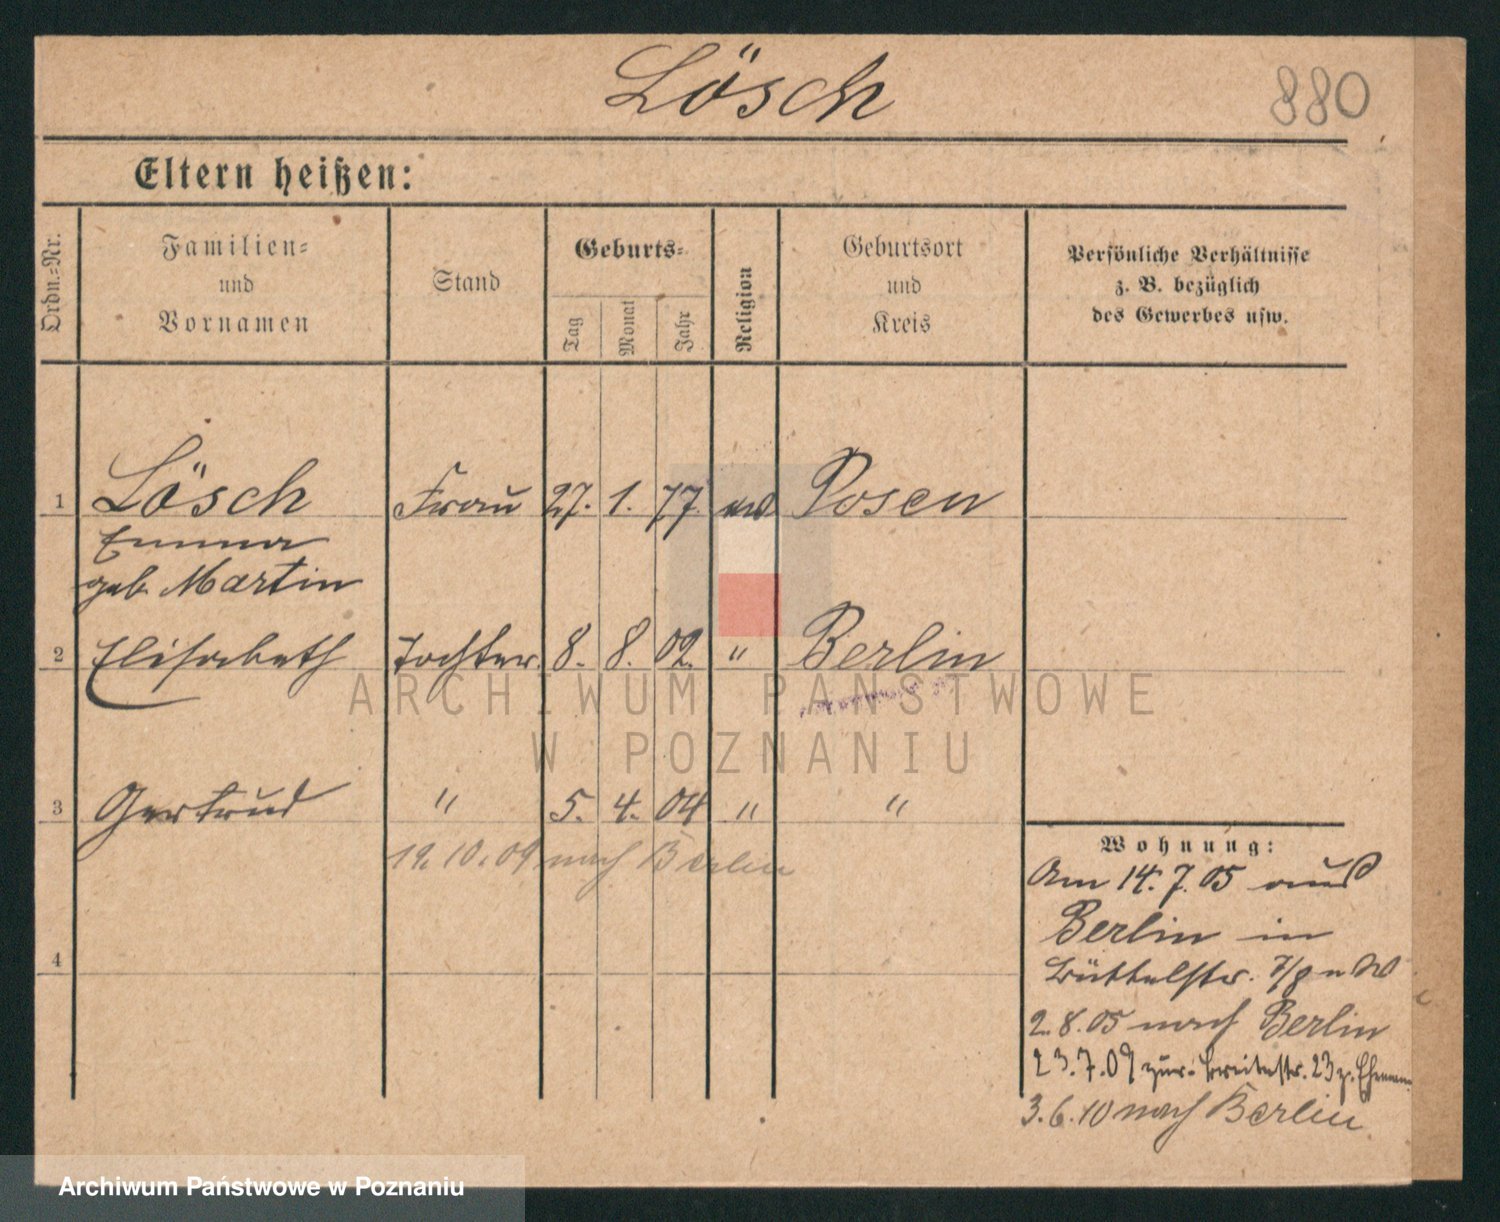 Lösch
880
Eltern heißen:
Ordn.-Nr.
Familien-
und
Vornamen
Stand
Geburts-
Tag
Monat
Jahr
Religion
Geburtsort
und
Kreis
Persönliche Verhältnisse
z. B. bezüglich
des Gewerbes usw.
1 Lösch Frau 27. 1. 77. ev Posen
Emma
geb. Martin
2 Elisabeth Tochter. 8. 8. 02. " Berlin
ARCHIWUM PAŃSTWOWE
W POZNANIU
3 Gertrud " 5. 4. 04 " "
19. 10. 09 nach Berlin
4
Wohnung:
Am 14. 7. 05 aus
Berlin in
Büttelstr. 7/8
2. 8. 05 nach Berlin
23. 7. 09 zur. Breitestr. 23 z. Ehemann
3. 6. 10 nach Berlin
Archiwum Państwowe w Poznaniu